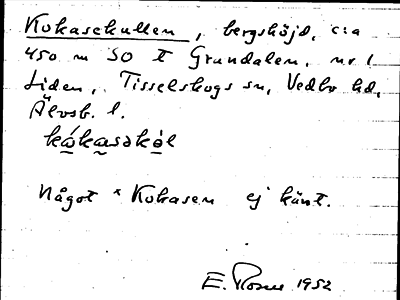 Kokasekullen, bergshöjd, c:a
450 m SO t Grundalen, nr 1
Liden, Tisselskogs sn, Vedbo hd,
Älvsb. l.
kókasəkəl
Något * Kokasen ej känt.
E. 1952